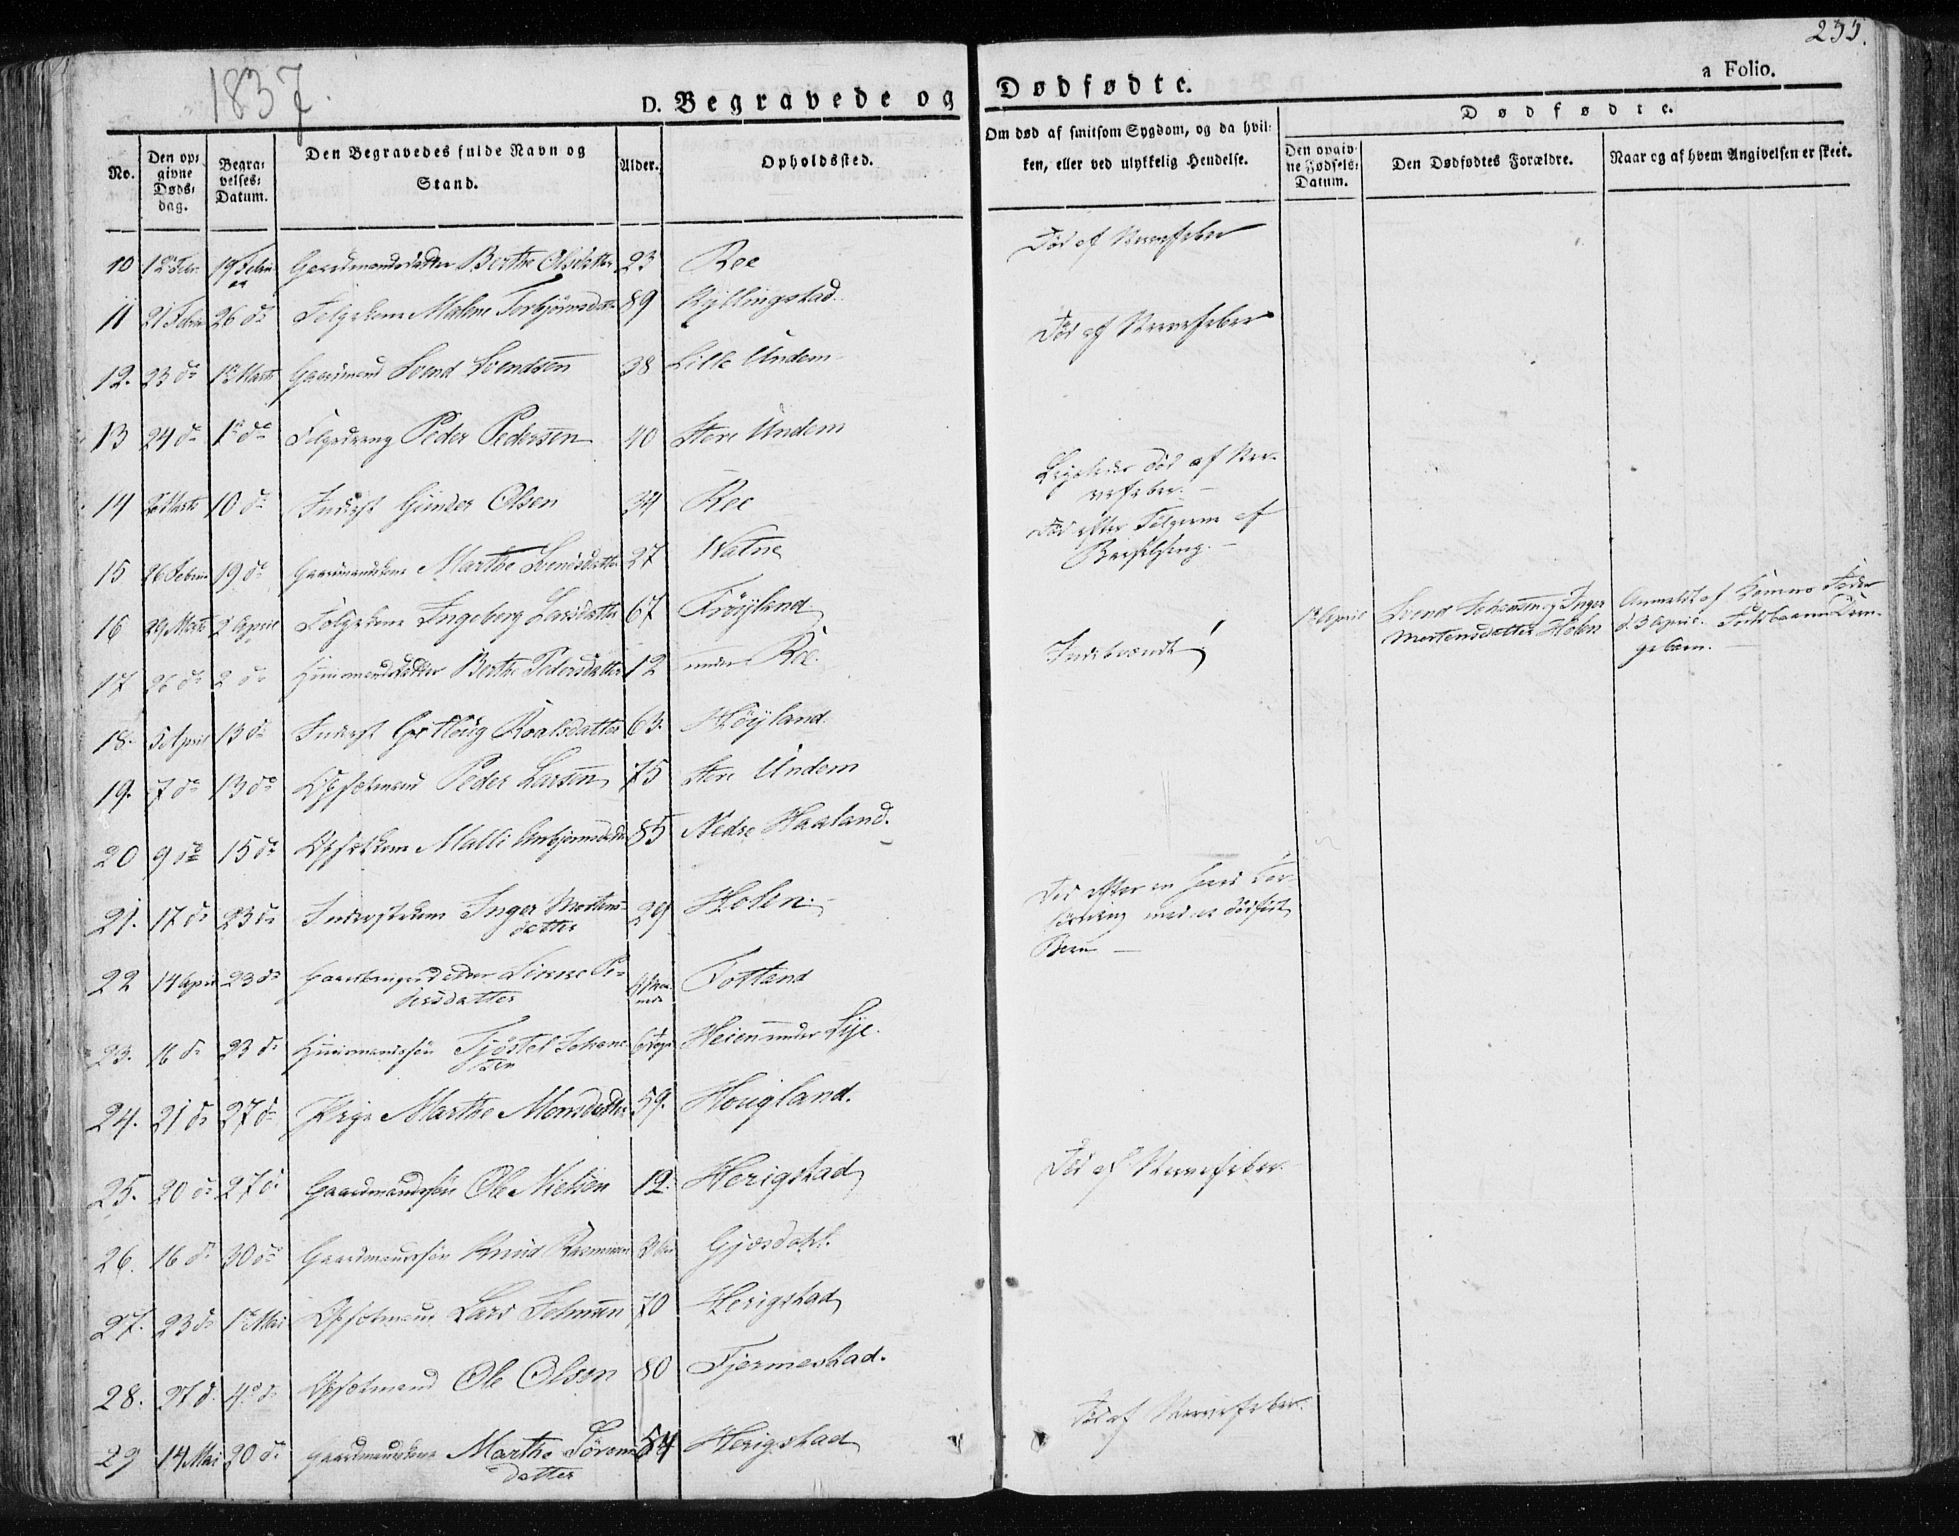 1837.
235.
D. Begravede og Dødfødte.
a Folio.
No.
Den op-
givne
Døds-
dag.
Begra-
velses-
Datum.
Den Begravedes fulde Navn og
Stand.
Alder.
Opholdssted.
Om død af smitsom Sygdom, og da hvil-
ken, eller ved ulykkelig Hendelse.
Dødfødte.
Den opgiv-
ne Fødsels-
Datum.
Den Dødfødtes Forældre.
Naar og af hvem Angivelsen er skeet.
10 12 Febr. 19 Febru Gaardmandsdatter Berthe Olsdatter 23 Ree Død af Nervefeber
11 21 Febru 26 do Malene Torbjörnsdatr 89 Kyllingstad
12. 23 do 1ste Marts Gaardmand Svend Svendsen 38 Lille Undem Død af Nervefeber
13 24 do 1ste do Peder Pedersen 40 Store Undem
14 Marts 10 do Inderst Gunder Olsen 34 Ree Ligeledes død af Ner-
vefeber.
15 26 Febru 19 do Gaardmandskone Marthe Svendsdatter 27 Watne Død efter Følgerne af
Barselseng.
16 29 Marts 2 April Ingeborg Larsdatter 67 Fröyland
1ste April Svend Johannesen og Inger
Mortensdatter Holen
Anmeldt af
d. 3 April. Dren-
gebarn.
17 26 do 2 do Huusmandsdatter Berthe Pedersdatter 12 under Ree. Indebrændt
18. 5 April 13 do Inderst Roalsdatter 63. Höyland
19. 7 do 13 do Peder Larsen 75 Store Undem
20 9 do 15 do Malli Asbjörnsdattr 85 Nedre Haaland.
21. 17 do 23 do Inderstekone Inger Mortens-
datter 29 Holen. Død efter en haard For-
løsning med et dødfødt
Barn
22 14 April 23 do Pe-
dersdatter Fotland
23. 16 do 23 do Huusmandssön Tjöstel Johane-
sen 6 Dage Heien under Lye.
24. 21 do 27 do Pige Marthe Monsdatter 59. Hougland.
25. 20 do 27 do Gaardmandssön Ole Nielsen 12. Herigstad Død af Nervefeber.
26. 16 do 30 do Gaardmandssön Knud Rasmusen Gjæsdahl.
27. 23 do 1ste Mai Lars 70 Herigstad
28. 27 d. 4de do Ole Olsen 80 Tjermestad.
29 14 Mai 20 do Gaardmandskone Marthe Sörens-
datter 54 Herigstad Død af Nervefeber.